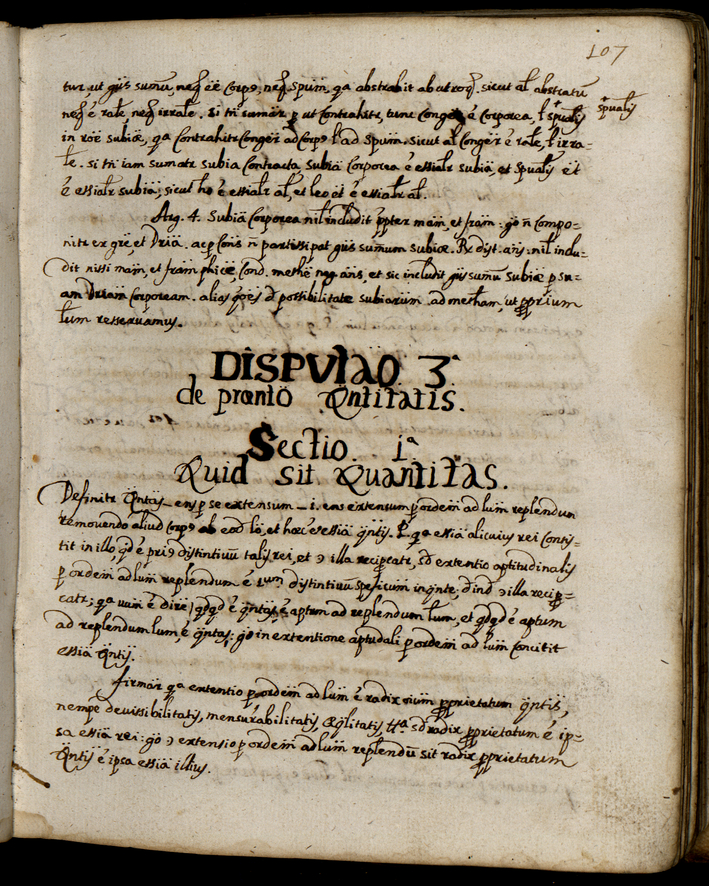 107
tur, ut gũs sumũ, neq̃ ẽẽ Corpꝯ, neq̃ spũm, qa abstrahit ab utroq̃. sicut al̃ abstractũ
neq̃ ẽ rãle, neq̃ irrãle. si tñ sumãr, p ut Contrahitr, tunc Congeꝛ ẽ Corporea, l̃ spualis
spualis
in roẽ subiæ, qa Contrahitr Congeꝛ ad Corpꝯ l̃ ad spũm. sicut al̃ Congeꝛ ẽ rãle, l̃ irra-
le. si tñ iam sumatr subia Contracta, subia Corporea ẽ essialr subia, et spualis ẽt
ẽ essialr subia, sicut ho ẽ essialr al̃, et leo ẽt ẽ essialr al̃.
Arg. 4. Subia Corporea nil includit p̃pter mãm, et frãm: go ñ Compo-
nitr ex gñe, et Dria. ac p Cons ñ partissipat gũs sumum subiæ. Rꝫ dist. añs: nil inclu-
dit nissi mãm, et frãm phicẽ, Cond. methẽ neg. añs, et sic includit gũs sumũ subiæ p su-
am Driam Corpoream. alias qões d possibilitate subiarum ad metham, ut p̃prium
lum resservamus.
DISPVTAO. 3ª
de prænto Qntitatis.
Sectio. 1ª
Quid sit Quantitas.
Definitr Qntas_ ens p se extensum _ i. ens extensum p ordem ad lum replendum
removendo aliud Corpꝯ ab eod lo, et hæc ẽ essia qntis. Pr. qa essia alicuius rei Consis-
tit in illo, qd ẽ priꝯ distintivũ talis rei, et ɔ illa recipcatr, sd extentio aptitudinalis
p ordem ad lum replendum ẽ 1um distintivũ speficum in qnte; dind ɔ illa recip-
catr; qa uum ẽ dire, qdqd ẽ qntas, ẽ aptum ad replendum lum, et qdqd ẽ aptum
ad replendum lum, ẽ qntas; go in extentione aptudali p ordem ad lum Concitit
essia qntis.
firmãr qa extentio p ordem ad lum ẽ radix oium p̃prietatum qntis,
nempe devissibilitatis, mensurabilitatis, æqlitatis, ttª. sd radix p̃prietatum ẽ ip-
sa essia rei: go ɔ extensio p ordem ad lum replendũ sit radix p̃prietatum
Qntis ẽ ipsa essia illius.